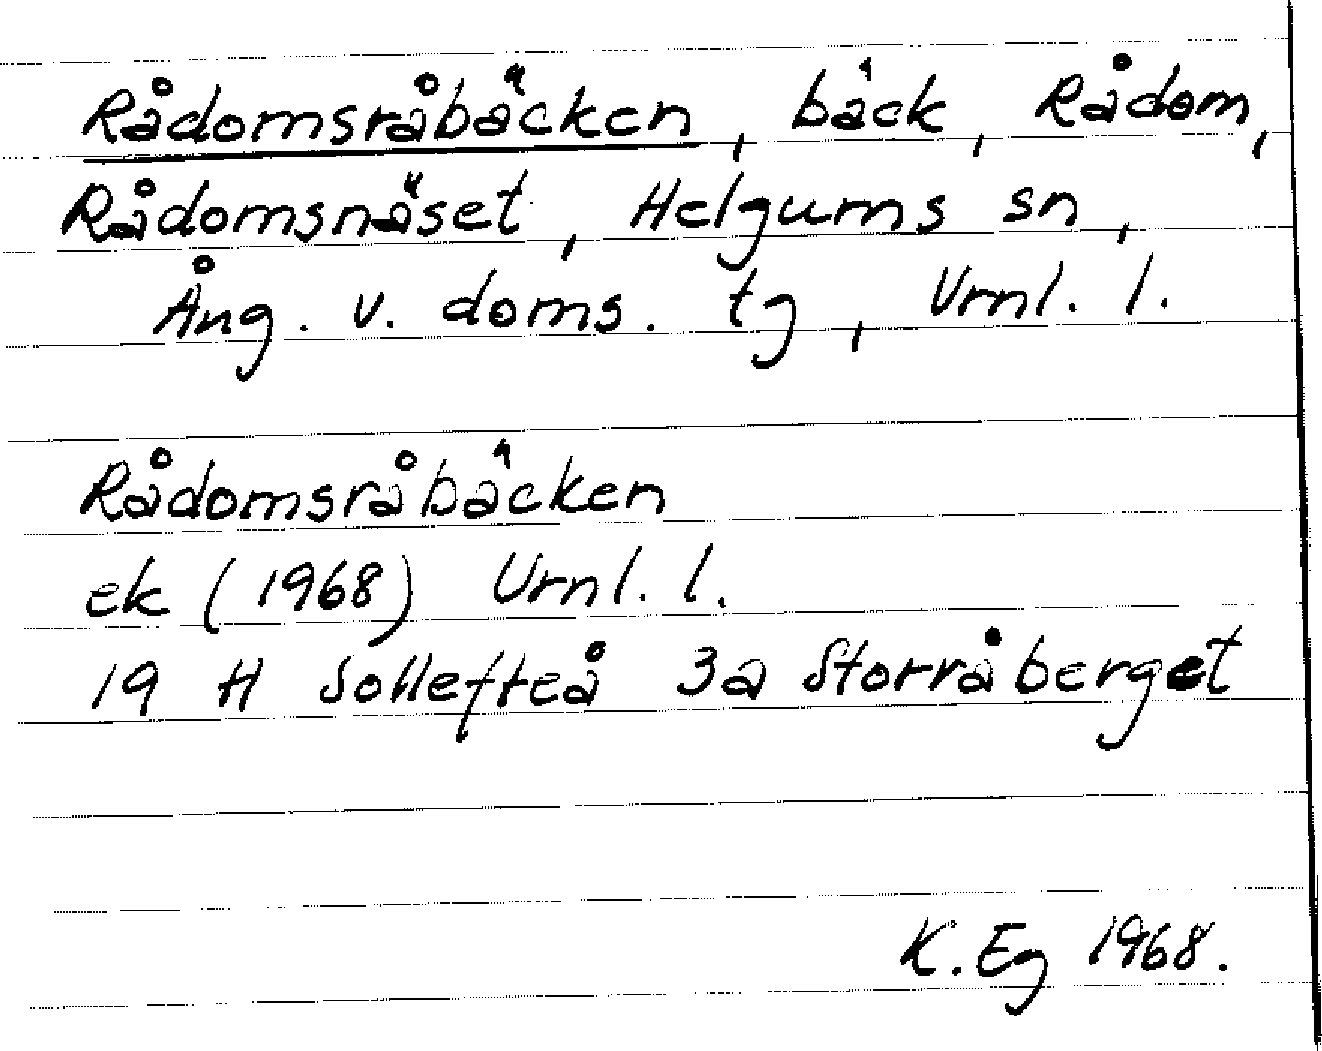 Rådomsråbäcken, bäck, Rådom,
Rådomsnäset, Helgums sn,
Ång. v. doms. tg, Vrnl. l.
Rådomsråbäcken
ek (1968) Vrnl. l.
19 H Sollefteå 3a Storråberget
K. Eg 1968.